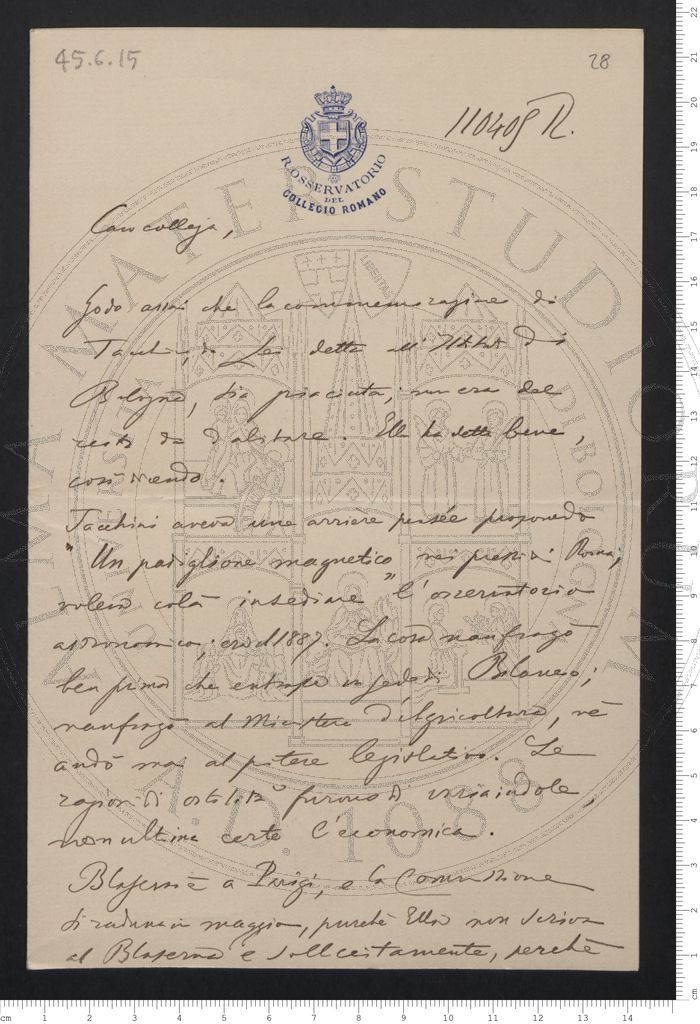 45.6.15
28
110409 R.
R. OSSERVATORIO
DEL
COLLEGIO ROMANO
Caro collega,
Godo assai che la commemorazione di
Tacchini, da Lei detta all'Istituto di
Bologna, sia piaciuta; non era del
resto da dubitare. Ella ha detto bene,
così
Tacchini aveva une arrière pensée proponendo
"Un padiglione magnetico" nei pressi di Roma;
voleva colà insediare l'osservatorio
astronomico; era il 1887. La cosa naufragò
ben prima che entrasse in sede di Bilancio;
naufragò al Ministero d'Agricoltura, nè
andò mai al potere legislativo. Le
ragioni di ostilità furono di varia indole,
non ultima certo l'economica.
Blaserna è a Parigi, e la Commissione
si raduna in maggio, purchè Ella non scriva
al Blaserna e sollecitamente, perchè
ALMA MATER STUDIORUM
A.D. 1088
LIBERTAS